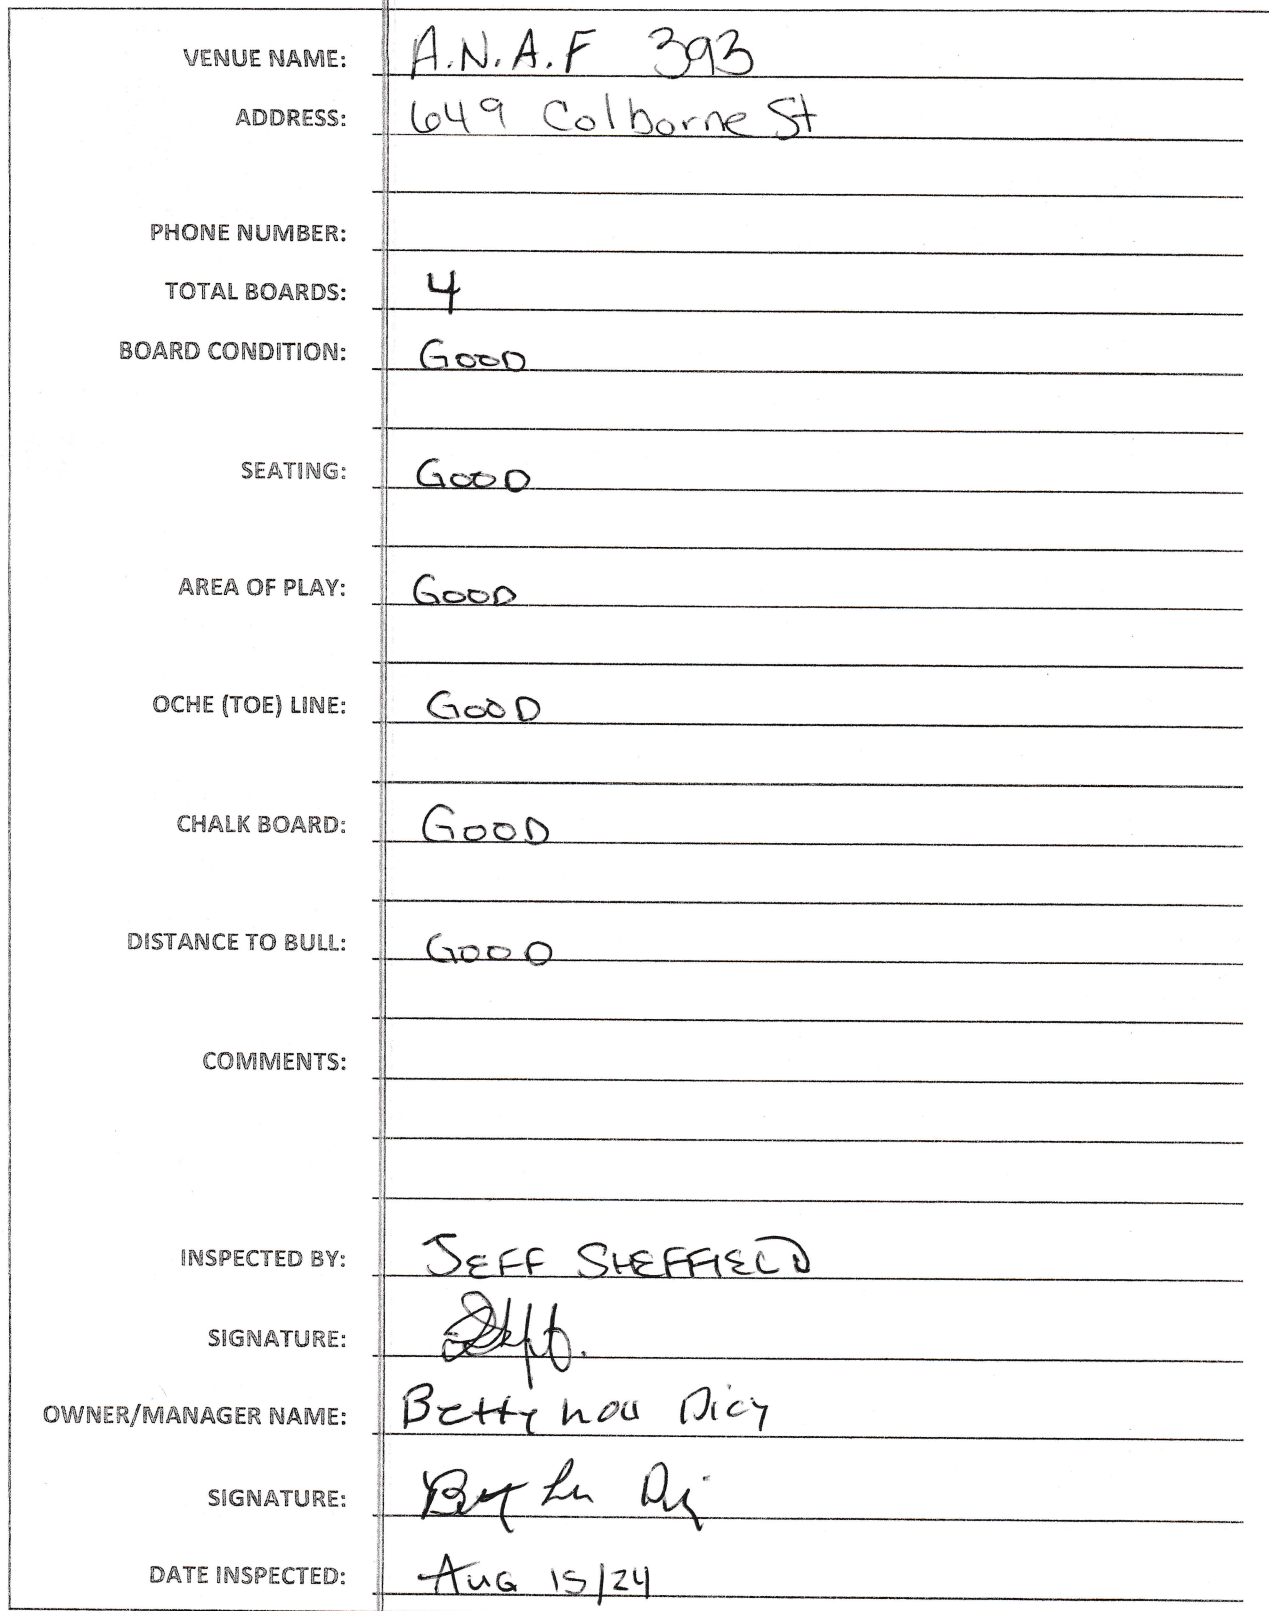 VENUE NAME: A.N.A.F 393
ADDRESS: 649 Colborne St
PHONE NUMBER:
TOTAL BOARDS: 4
BOARD CONDITION: GOOD
SEATING: GOOD
AREA OF PLAY: GOOD
OCHE (TOE) LINE: GOOD
CHALK BOARD: GOOD
DISTANCE TO BULL: GOOD
COMMENTS:
INSPECTED BY: JEFF SHEFFIELD
SIGNATURE:
OWNER/MANAGER NAME: Betty Lou
SIGNATURE:
DATE INSPECTED: AUG 15/24